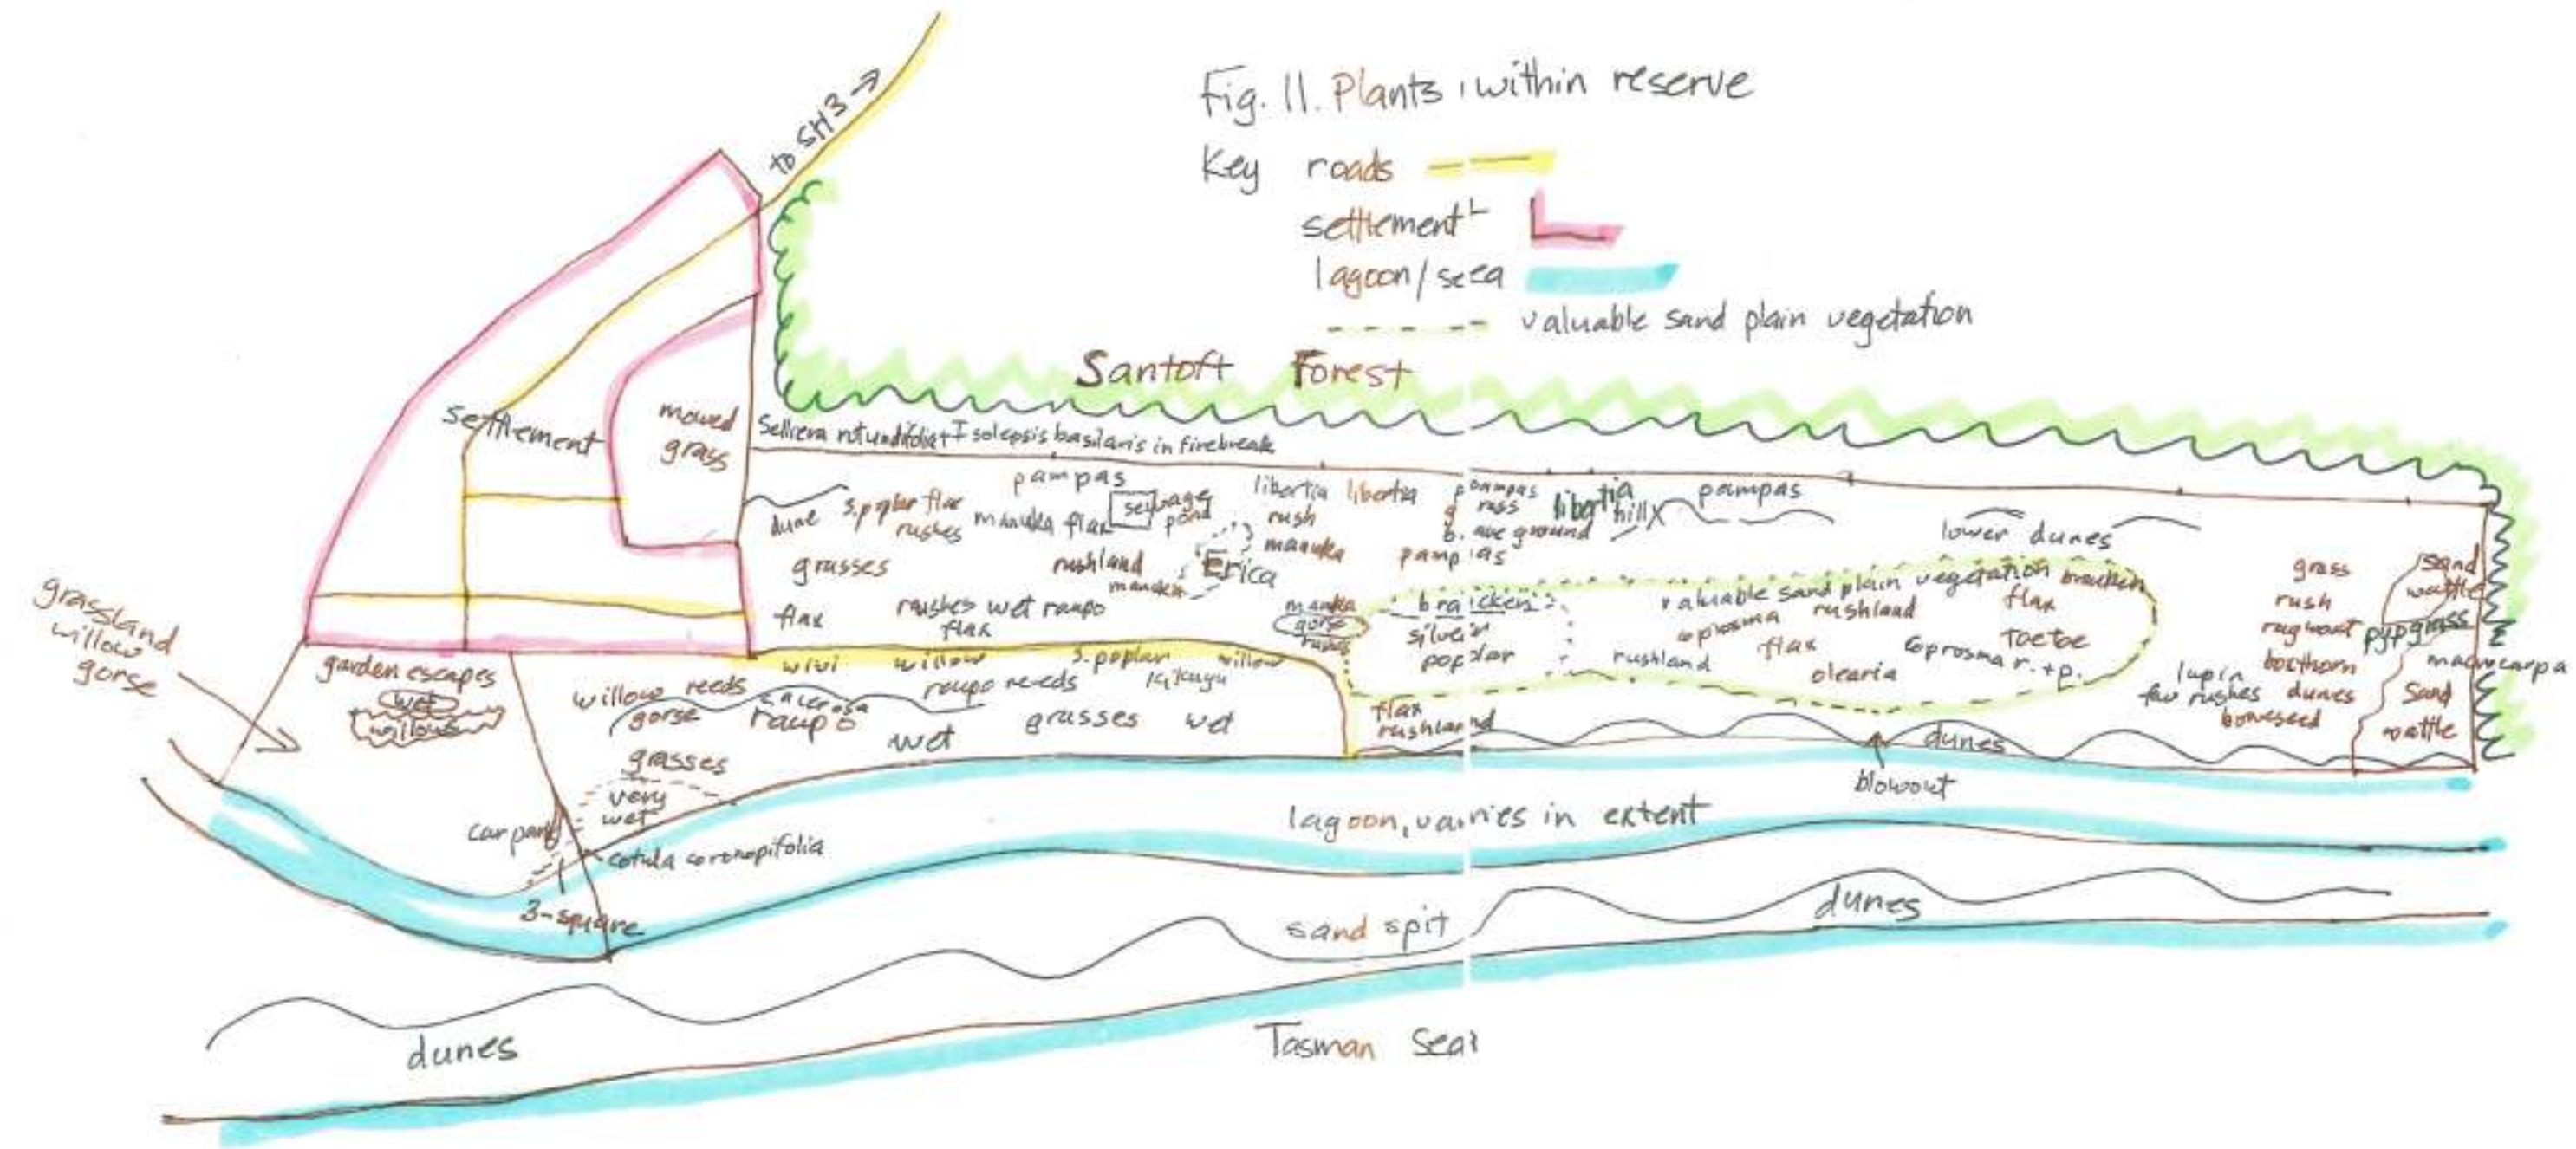 Fig. 11. Plants within reserve
Key roads
settlement
lagoon/sea
valuable sand plain vegetation
to SH3 →
Santoft Forest
settlement
mowed
grass
Selliera rotundifolia + Isolepsis basilaris in firebreak
pampas
dune
s.poplar flax
rushes
manuka flax
sewage
pond
libertia libertia
rush
manuka
pampas
grass
bare ground
pampas
libertia
hill
pampas
lower dunes
grasses
rushland
manuka
Erica
flax
rushes wet raupo
flax
manuka
gorse
rushes
bracken
silver
poplar
valuable sand plain vegetation
bracken
coprosma
rushland
flax
rushland
flax
olearia
coprosma r. + p.
toetoe
grass
rush
ragwort
boxthorn
lupin
few rushes
dunes
boneseed
sand
wattle
pypgrass
macrocarpa
sand
wattle
grassland
willow
gorse
garden escapes
wet
willows
wiwi
willow
s.poplar
willow
willow reeds
raupo reeds
kikuyu
gorse
raupo
grasses
wet
wet
grasses
very
wet
flax
rushland
dunes
blowout
carpark
cotula coronopifolia
3-square
lagoon, varies in extent
sand spit
dunes
dunes
Tasman Sea